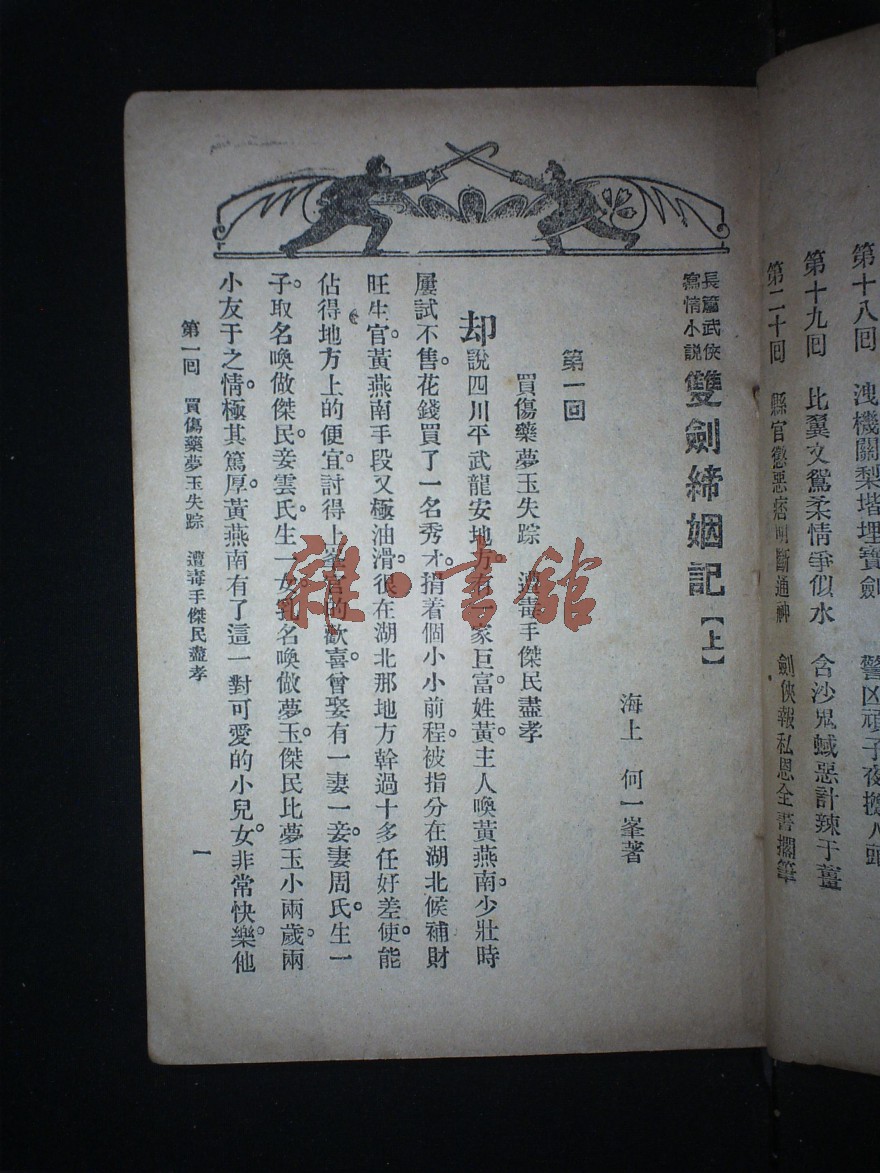 第十八回　洩機關梨塔埋寶劍　警凶頑子夜擲人頭
第十九回　比翼文鴛柔情爭似水　含沙鬼蜮惡計辣于薑
第二十回　縣官懲惡痞明斷通神　劍俠報私恩全書擱筆
長篇武俠
寫情小說
雙劍締姻記【上】
海上　何一峯著
第一回
買傷藥夢玉失踪　遭毒手傑民盡孝
却說四川平武龍安地方有一家巨富。姓黃。主人喚黃燕南。少壯時
屢試不售。花錢買了一名秀才。捐着個小小前程。被指分在湖北候補財
旺生官。黃燕南手段又極油滑。很在湖北那地方幹過十多任好差使。能
佔得地方上的便宜。討得上峯官的歡喜。曾娶有一妻一妾。妻周氏。生一
子。取名喚做傑民。妾雲氏。生一女。乳名喚做夢玉。傑民比夢玉小兩歲。兩
小友于之情。極其篤厚。黃燕南有了這一對可愛的小兒女。非常快樂。他
第一回　買傷藥夢玉失踪　遭毒手傑民盡孝
一
雜·書館